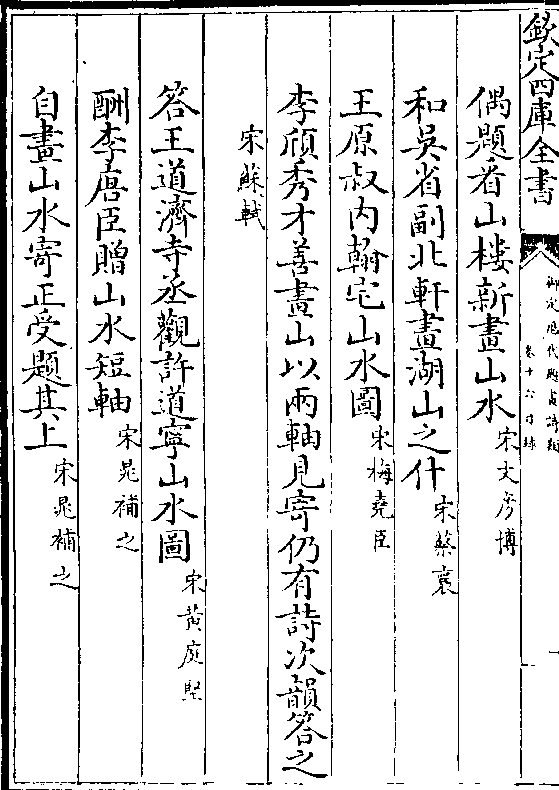 欽定四庫全書
御定歷代題畫詩類
卷十六目録
一
偶題看山樓新畫山水 宋文彦博
和吳省副北軒畫湖山之什 宋蔡襄
王原叔内翰宅山水圖 宋梅堯臣
李頎秀才善畫山以兩軸見寄仍有詩次韻答之
宋蘇軾
答王道濟寺丞觀許道寧山水圖 宋黄庭堅
酬李唐臣贈山水短軸 宋晁補之
自畫山水寄正受題其上 宋晁補之